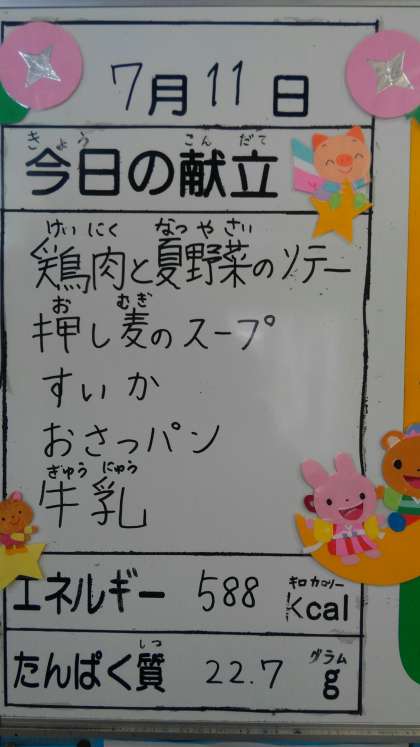 7月11日
きょう こんだて
今日の献立
けいにく なつやさい
鶏肉と夏野菜のソテー
お むぎ
押し麦のスープ
すいか
おさつパン
ぎゅうにゅう
牛乳
キロカロリー
エネルギー 588 kcal
しつ グラム
たんぱく質 22.7 g